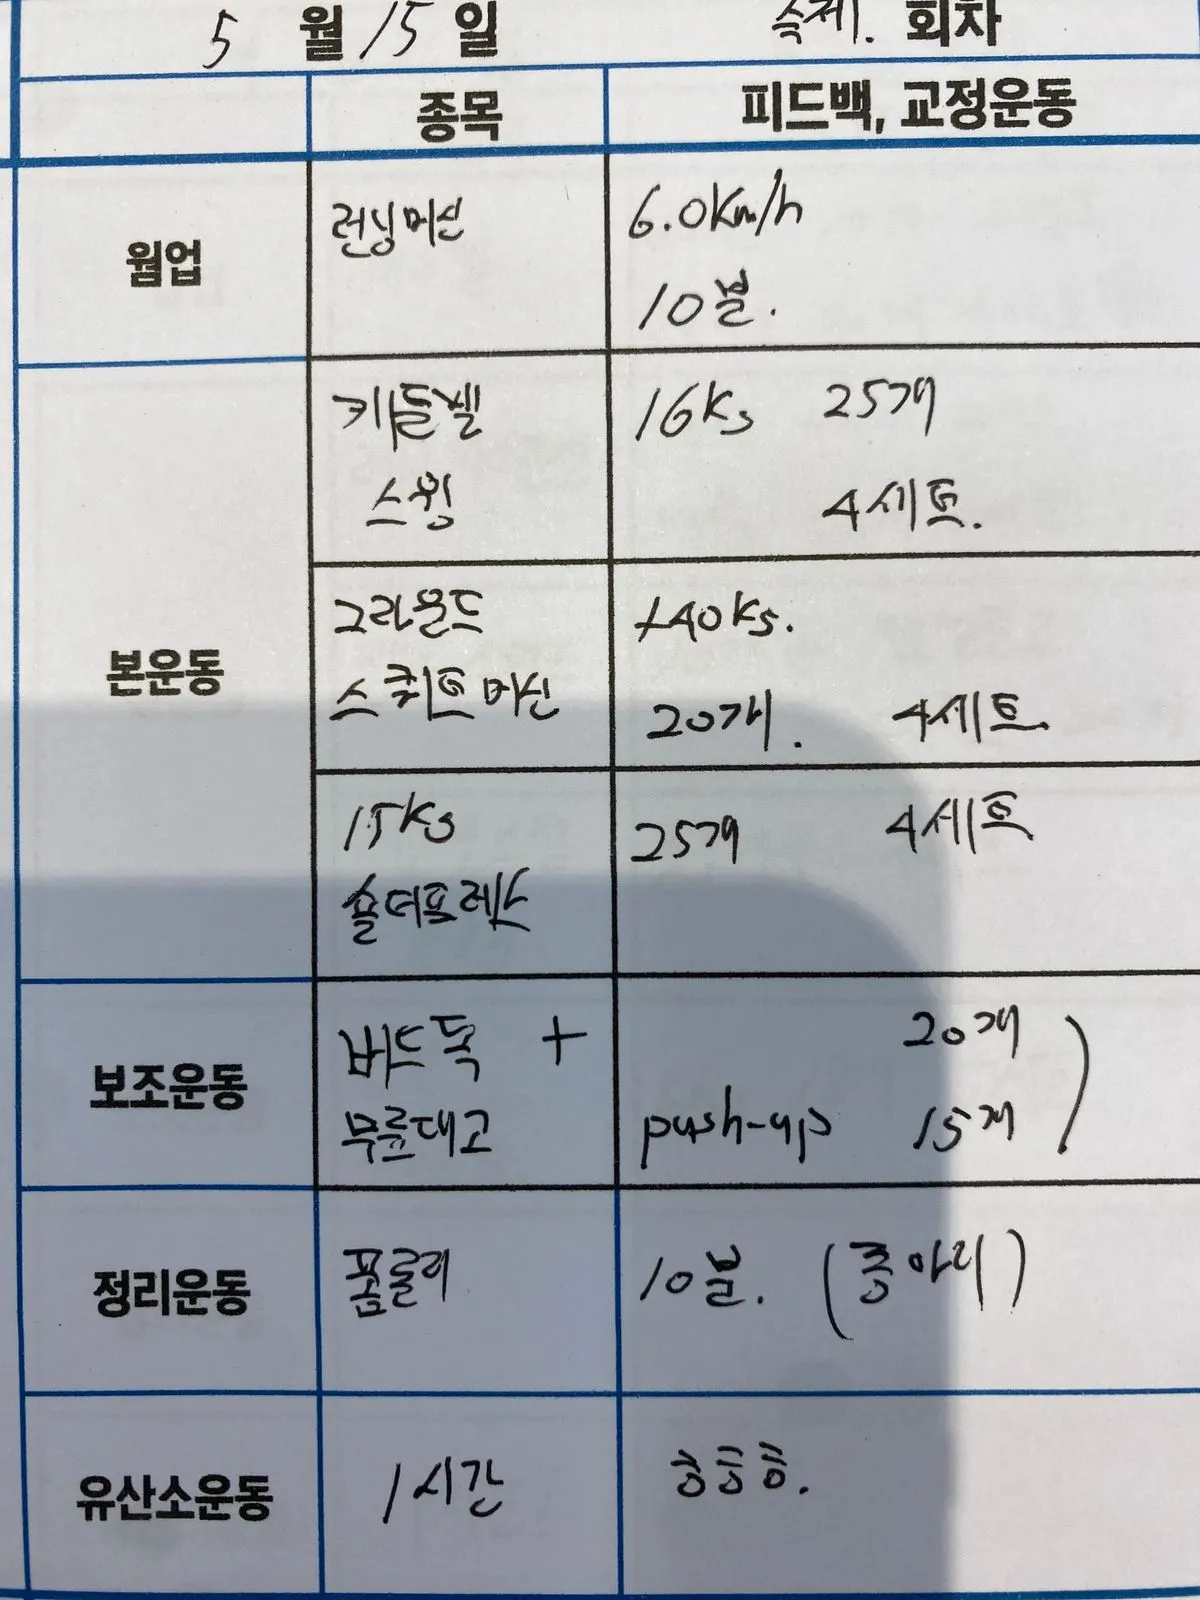 5 월 15 일 숙제. 회차
종목 피드백, 교정운동
웜업
런닝머신 6.0Km/h
10분.
본운동
케틀벨 16Kg 25개
스윙 4세트.
그라운드 +40Kg.
스쿼트머신 20개. 4세트.
15Kg 25개 4세트
숄더프레스
보조운동
버드독 + 20개
무릎대고 push-up 15개
정리운동
폼롤러 10분. (종아리)
유산소운동
1시간 흥흥흥.